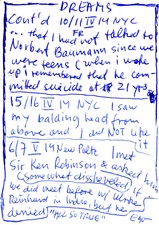 DREAMS
Cont'd 10/11 IV 14 NYC
FR
... that I had not talked to
Norbert Baumann since we
were teens (when I woke
up I remembered that he com
mitted suicide at 21 yrs.
15/16 IV 14 NYC I saw
my balding head from
above and I did NOT like
it
6/7 V 14 New Paltz I met
Sir Ken Robinson & asked him
(somewhat dissheveled) if
we did meet before w/
Reinhard in India, but he
denied "ALL SO TRUE"